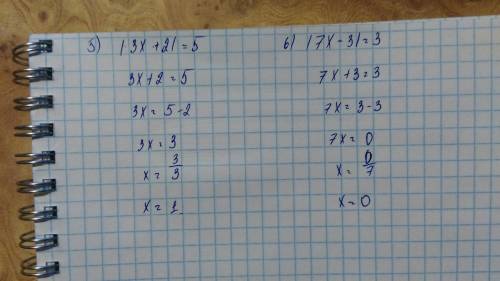 5) |3x+2|=5
3x+2=5
3x=5-2
3x=3
x=3/3
x=1
6) |7x-3|=3
7x+3=3
7x=3-3
7x=0
x=0/7
x=0